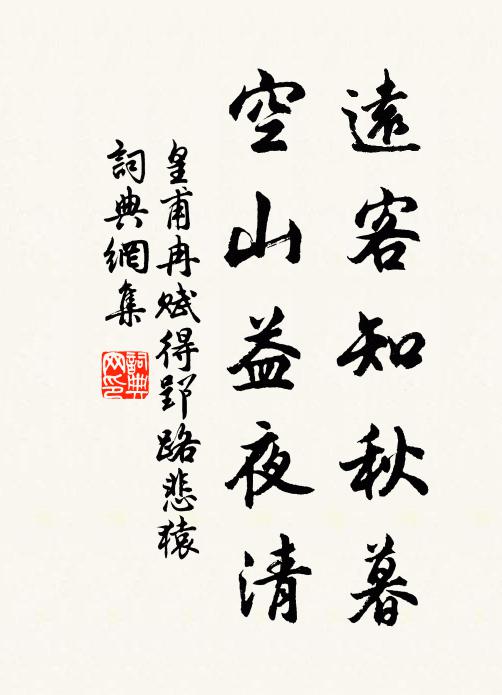 遠客知秋暮
空山益夜清
皇甫冉賦得郢路悲猿
詞典網集
詞典网印